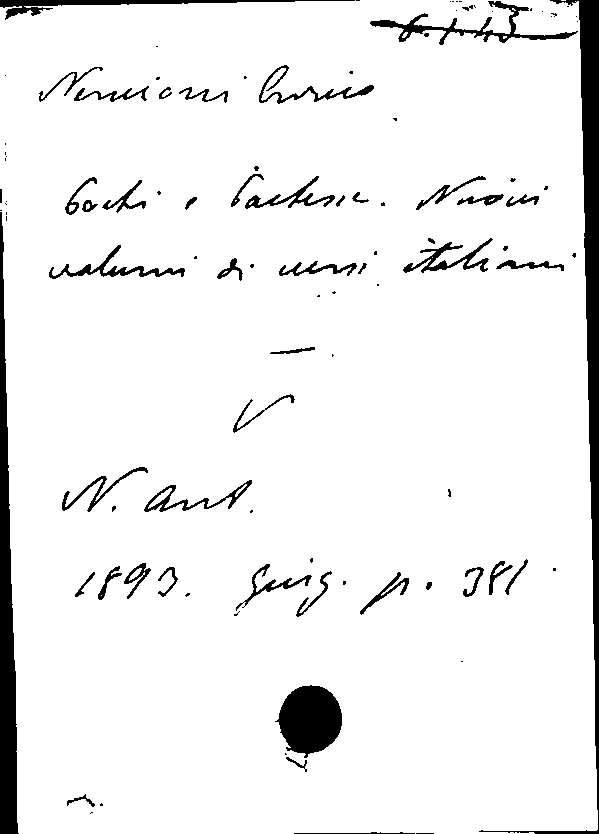 6.1.43
Nencioni Enrico
Poeti e Poetesse. Nuovi
volumi di versi italiani
—
V
N. Ant.
1893. giug. p. 381